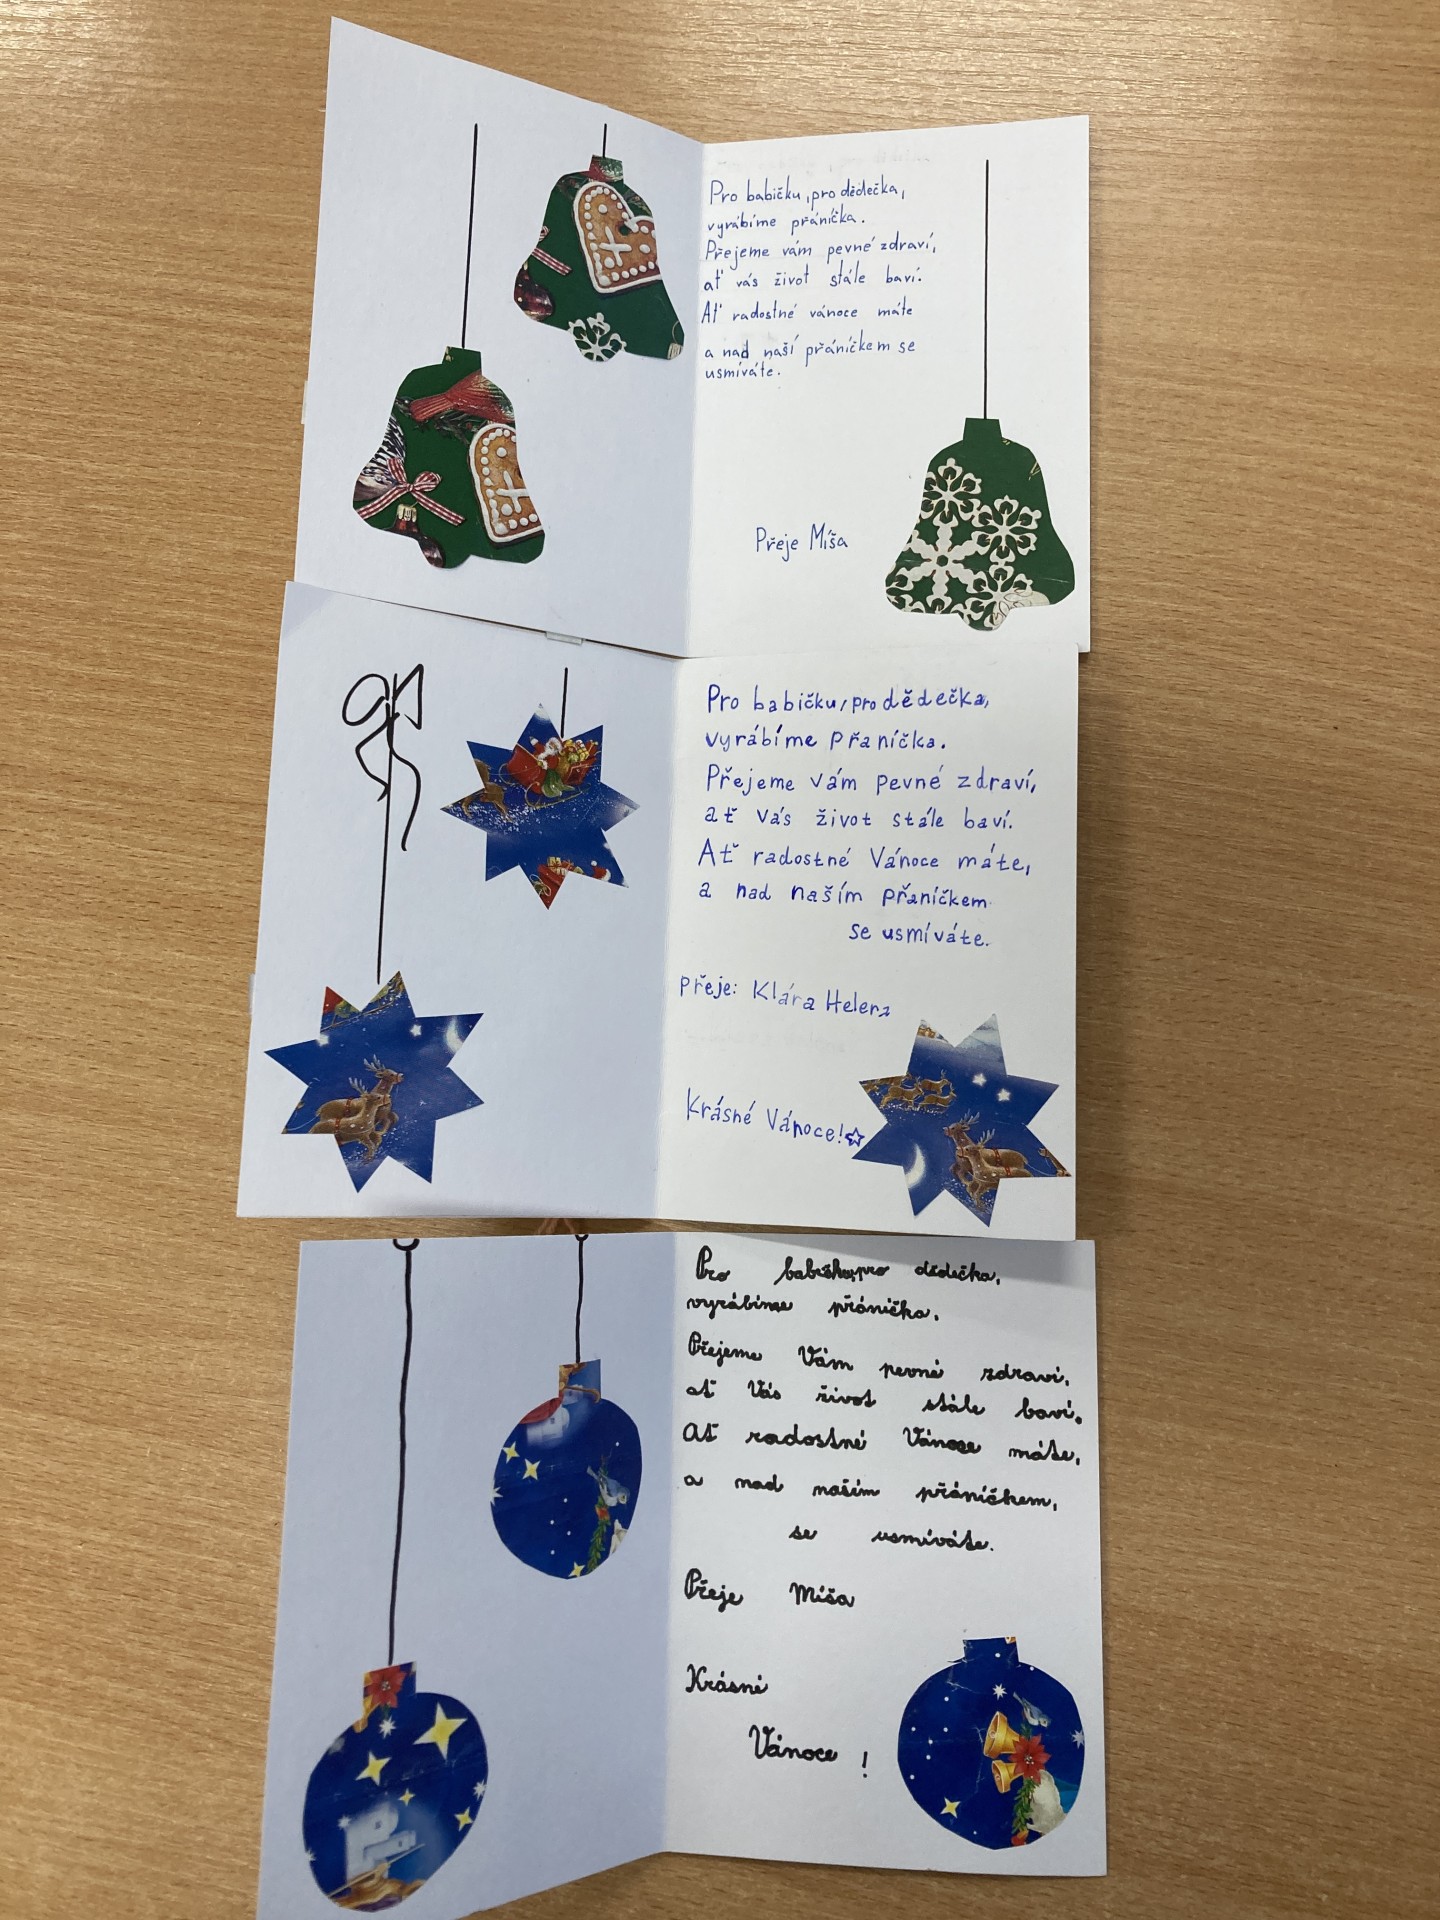 Pro babičku, pro dědečka,
vyrábíme přáníčka.
Přejeme vám pevné zdraví,
ať vás život stále baví.
Ať radostné vánoce máte
a nad naší přáníčkem se
usmíváte.
Přeje Míša
Pro babičku, pro dědečka,
vyrábíme přaníčka.
Přejeme vám pevné zdraví,
ať vás život stále baví.
Ať radostné Vánoce máte,
a nad naším přaníčkem
se usmíváte.
přeje: Klára Helena
Krásné Vánoce!
Pro babičku, pro dědečka,
vyrábíme přáníčka.
Přejeme Vám pevné zdraví,
ať Vás život stále baví.
Ať radostné Vánoce máte,
a nad naším přáníčkem,
se usmíváte.
Přeje Míša
Krásné
Vánoce !